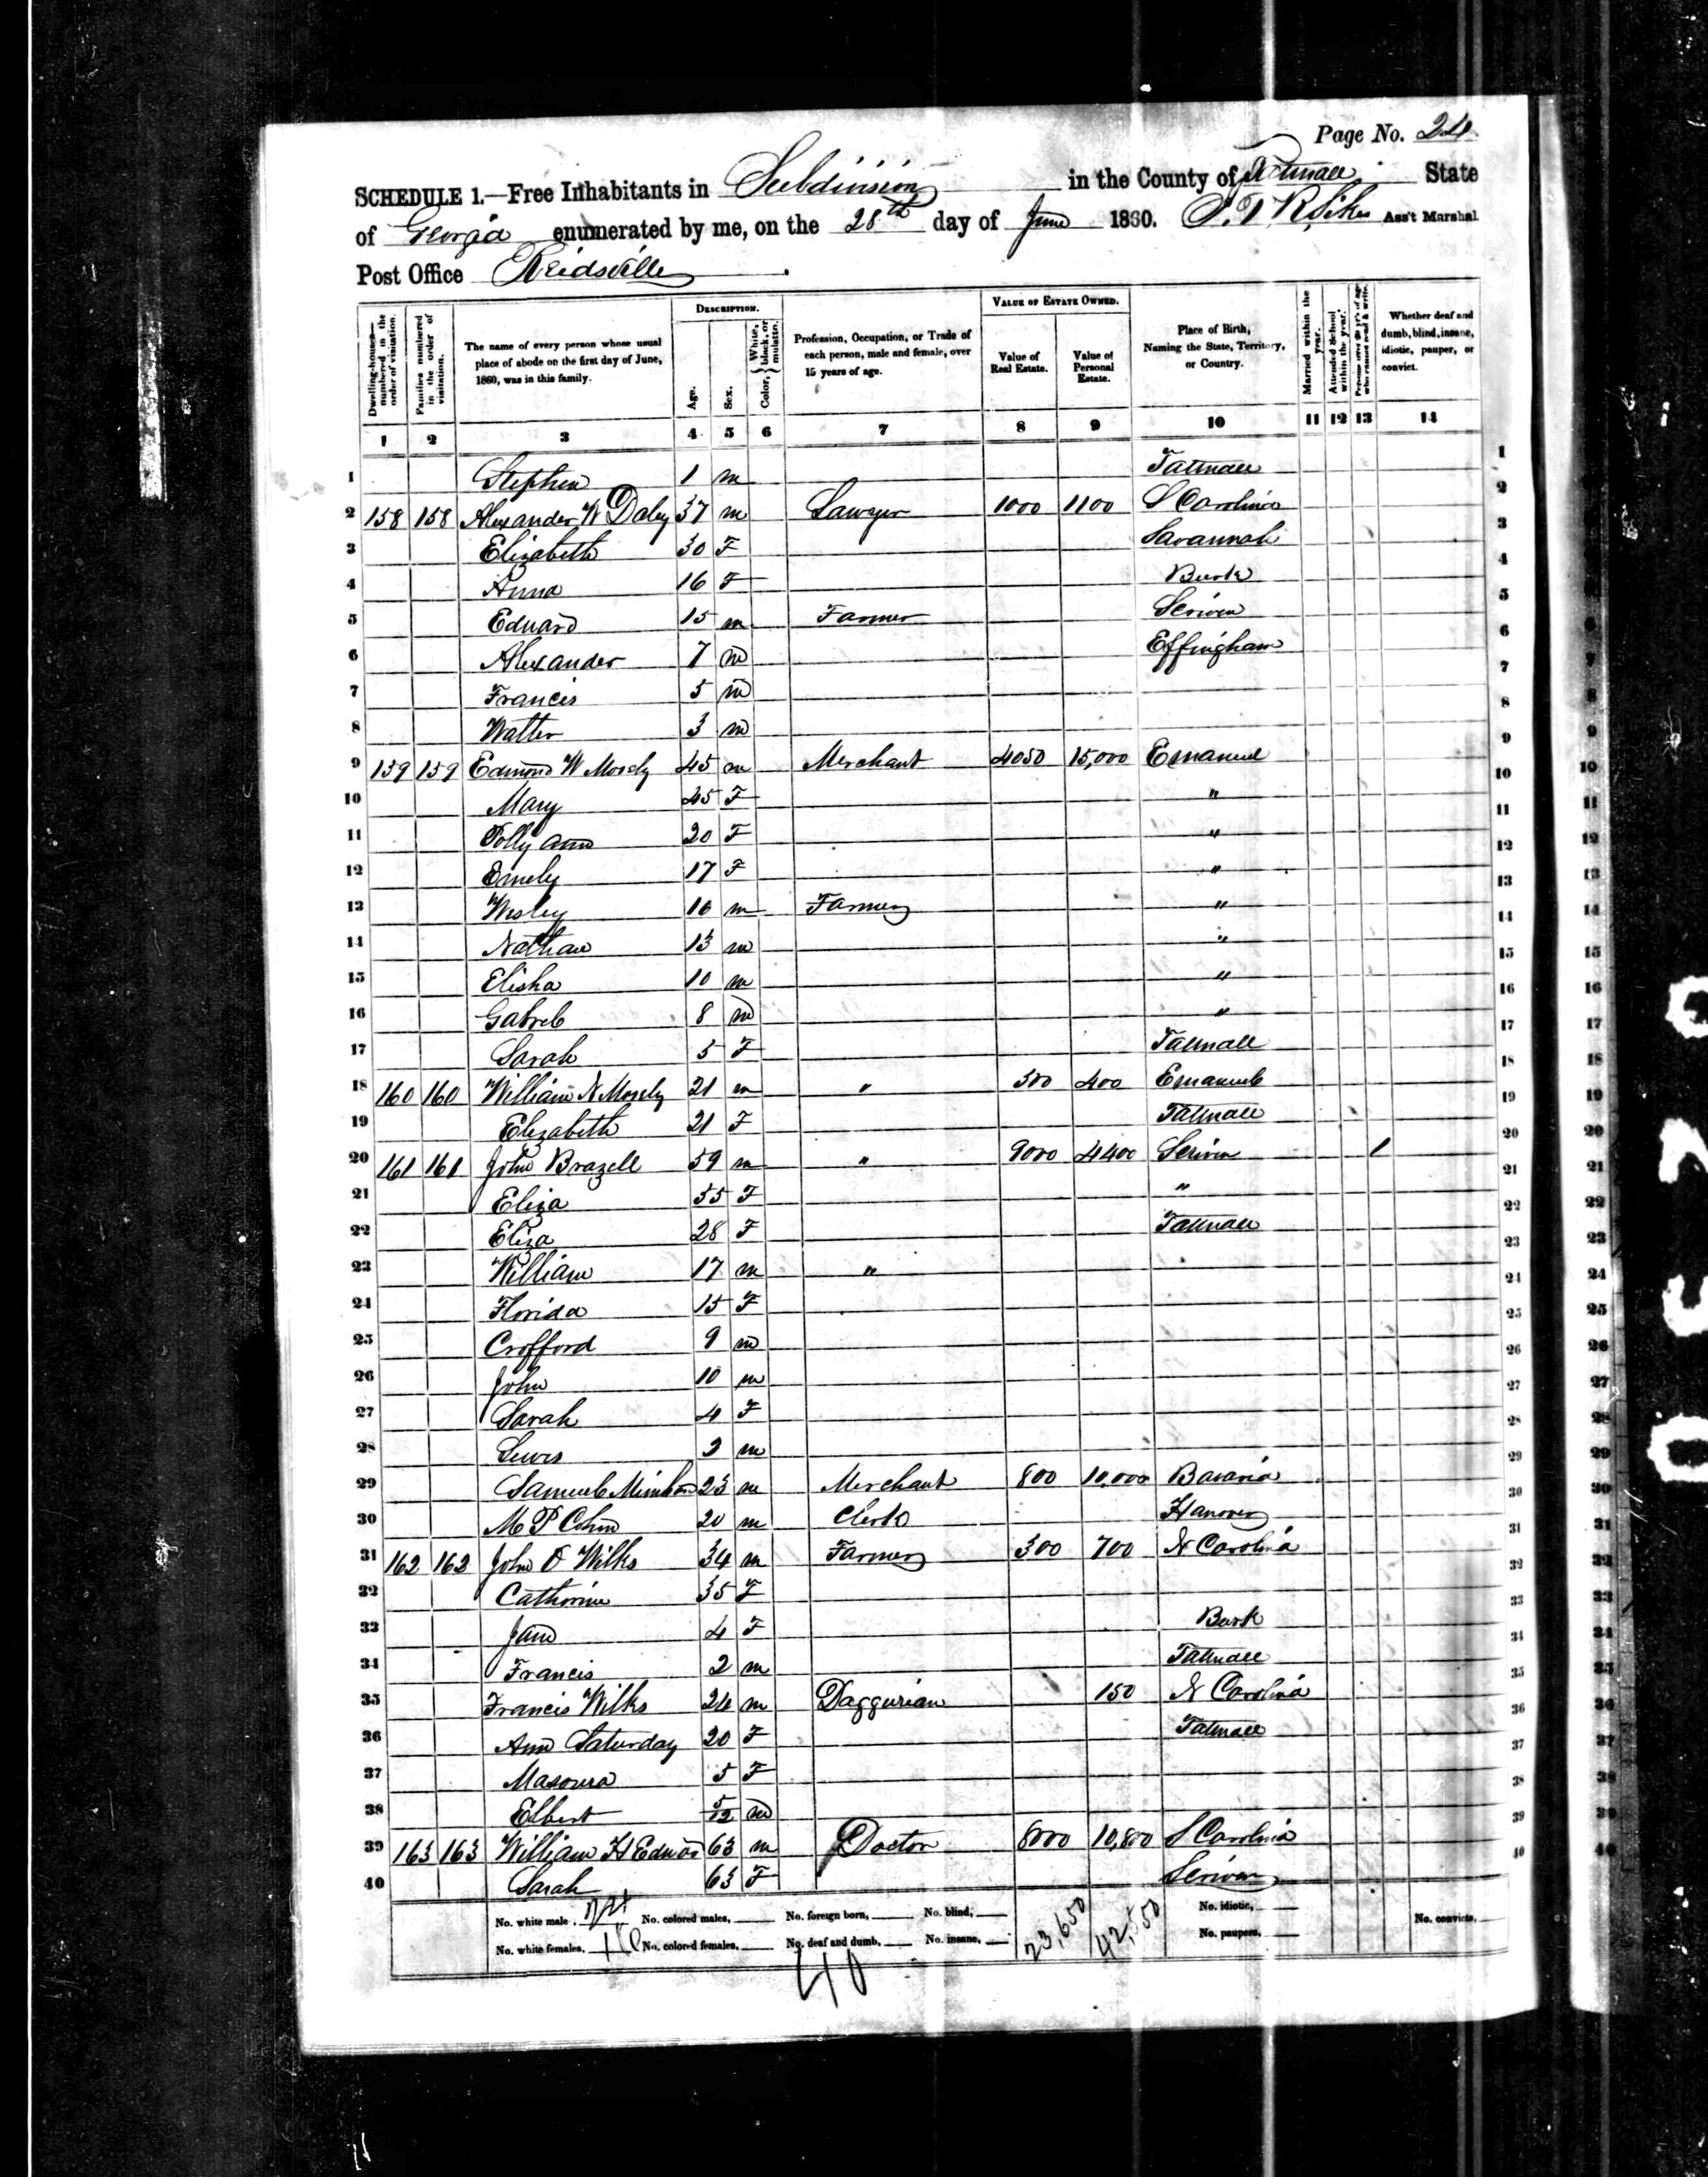 Page No. 24
SCHEDULE 1.—Free Inhabitants in Subdivision in the County of Tatnall State
of Georgia enumerated by me, on the 28th day of June 1860. Sikes Ass't Marshal
Post Office Reidsville
Dwelling-houses—numbered in the order of visitation. Families numbered in the order of visitation. The name of every person whose usual place of abode on the first day of June, 1860, was in this family. DESCRIPTION. Age. Sex. Color, White, black, or mulatto. Profession, Occupation, or Trade of each person, male and female, over 15 years of age. VALUE OF ESTATE OWNED. Value of Real Estate. Value of Personal Estate. Place of Birth, Naming the State, Territory, or Country. Married within the year. Attended School within the year. Persons over 20 y'rs of age who cannot read & write. Whether deaf and dumb, blind, insane, idiotic, pauper, or convict.
1 2 3 4 5 6 7 8 9 10 11 12 13 14
1 Stephen 1 m Tatnall 1
2 158 158 Alexander W Daley 37 m Lawyer 1000 1100 S Carolina 2
3 Elizabeth 30 F Savannah 3
4 Anna 16 F Burk 4
5 Edward 15 m Farmer Scriven 5
6 Alexander 7 m Effingham 6
7 Francis 5 m 7
8 Walter 3 m 8
9 159 159 Edmond W Mosely 45 m Merchant 4050 15,000 Emanuel 9
10 Mary 45 F " 10
11 Polly ann 20 F " 11
12 Emely 17 F " 12
13 Wesley 16 m Farmer " 13
14 Nathan 13 m " 14
15 Elisha 10 m " 15
16 Gabrel 8 m " 16
17 Sarah 5 F Tatnall 17
18 160 160 William N Mosely 21 m " 500 400 Emanuel 18
19 Elizabeth 21 F Tatnall 19
20 161 161 John Brazell 59 m " 9000 4400 Scriven 1 20
21 Eliza 55 F " 21
22 Eliza 28 F Tatnall 22
23 William 17 m " 23
24 Florida 15 F 24
25 Crofford 9 m 25
26 John 10 m 26
27 Sarah 4 F 27
28 Lewis 2 m 28
29 Samuel 23 m Merchant 800 10,000 Bavaria 29
30 M P Cohen 20 m Clerk Hanover 30
31 162 162 John O Wilks 34 m Farmer 300 700 N Carolina 31
32 Catherine 35 F 32
33 Jane 4 F Burk 33
34 Francis 2 m Tatnall 34
35 Francis Wilks 24 m Daggurian 150 N Carolina 35
36 Ann Saturday 20 F Tatnall 36
37 Masoura 5 F 37
38 Elbert 5/12 m 38
39 163 163 William H Edwards 63 m Doctor 8000 10,800 S Carolina 39
40 Sarah 63 F Scriven 40
No. white male, No. colored males, No. foreign born, No. blind, 23,650 42,550 No. idiotic,
No. white females, No. colored females, No. deaf and dumb, No. insane, No. paupers, No. convicts,
40